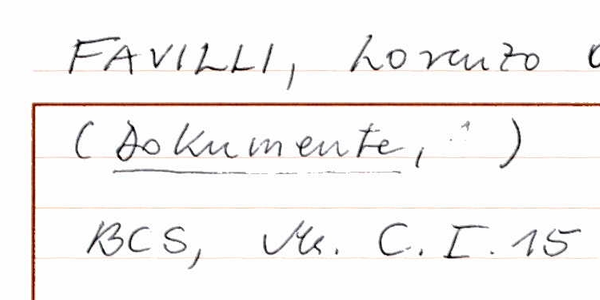 FAVILLI, Lorenzo
(Dokumente, )
BCS, Ms. C. I. 15